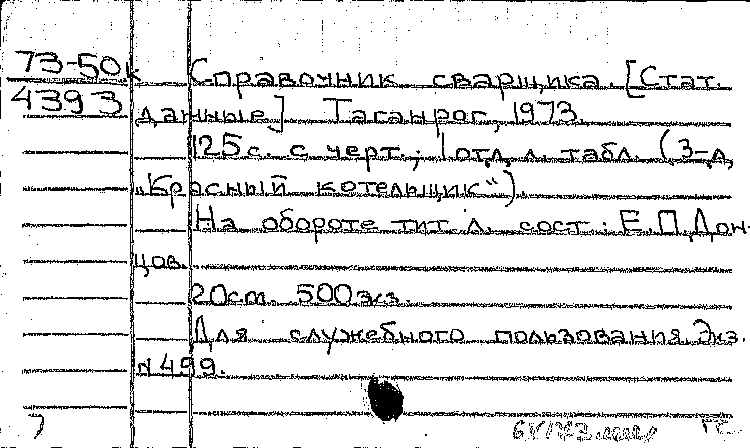 73-50к
4393
Справочник сварщика. [Стат.
данные] Таганрог, 1973.
125с. с черт.; 1отд. л. табл. (З-д
"Красный котельщик").
На обороте тит. л. сост.: Е.П.Дон-
цов.
20см. 500экз.
Для служебного пользования. Экз.
№499.